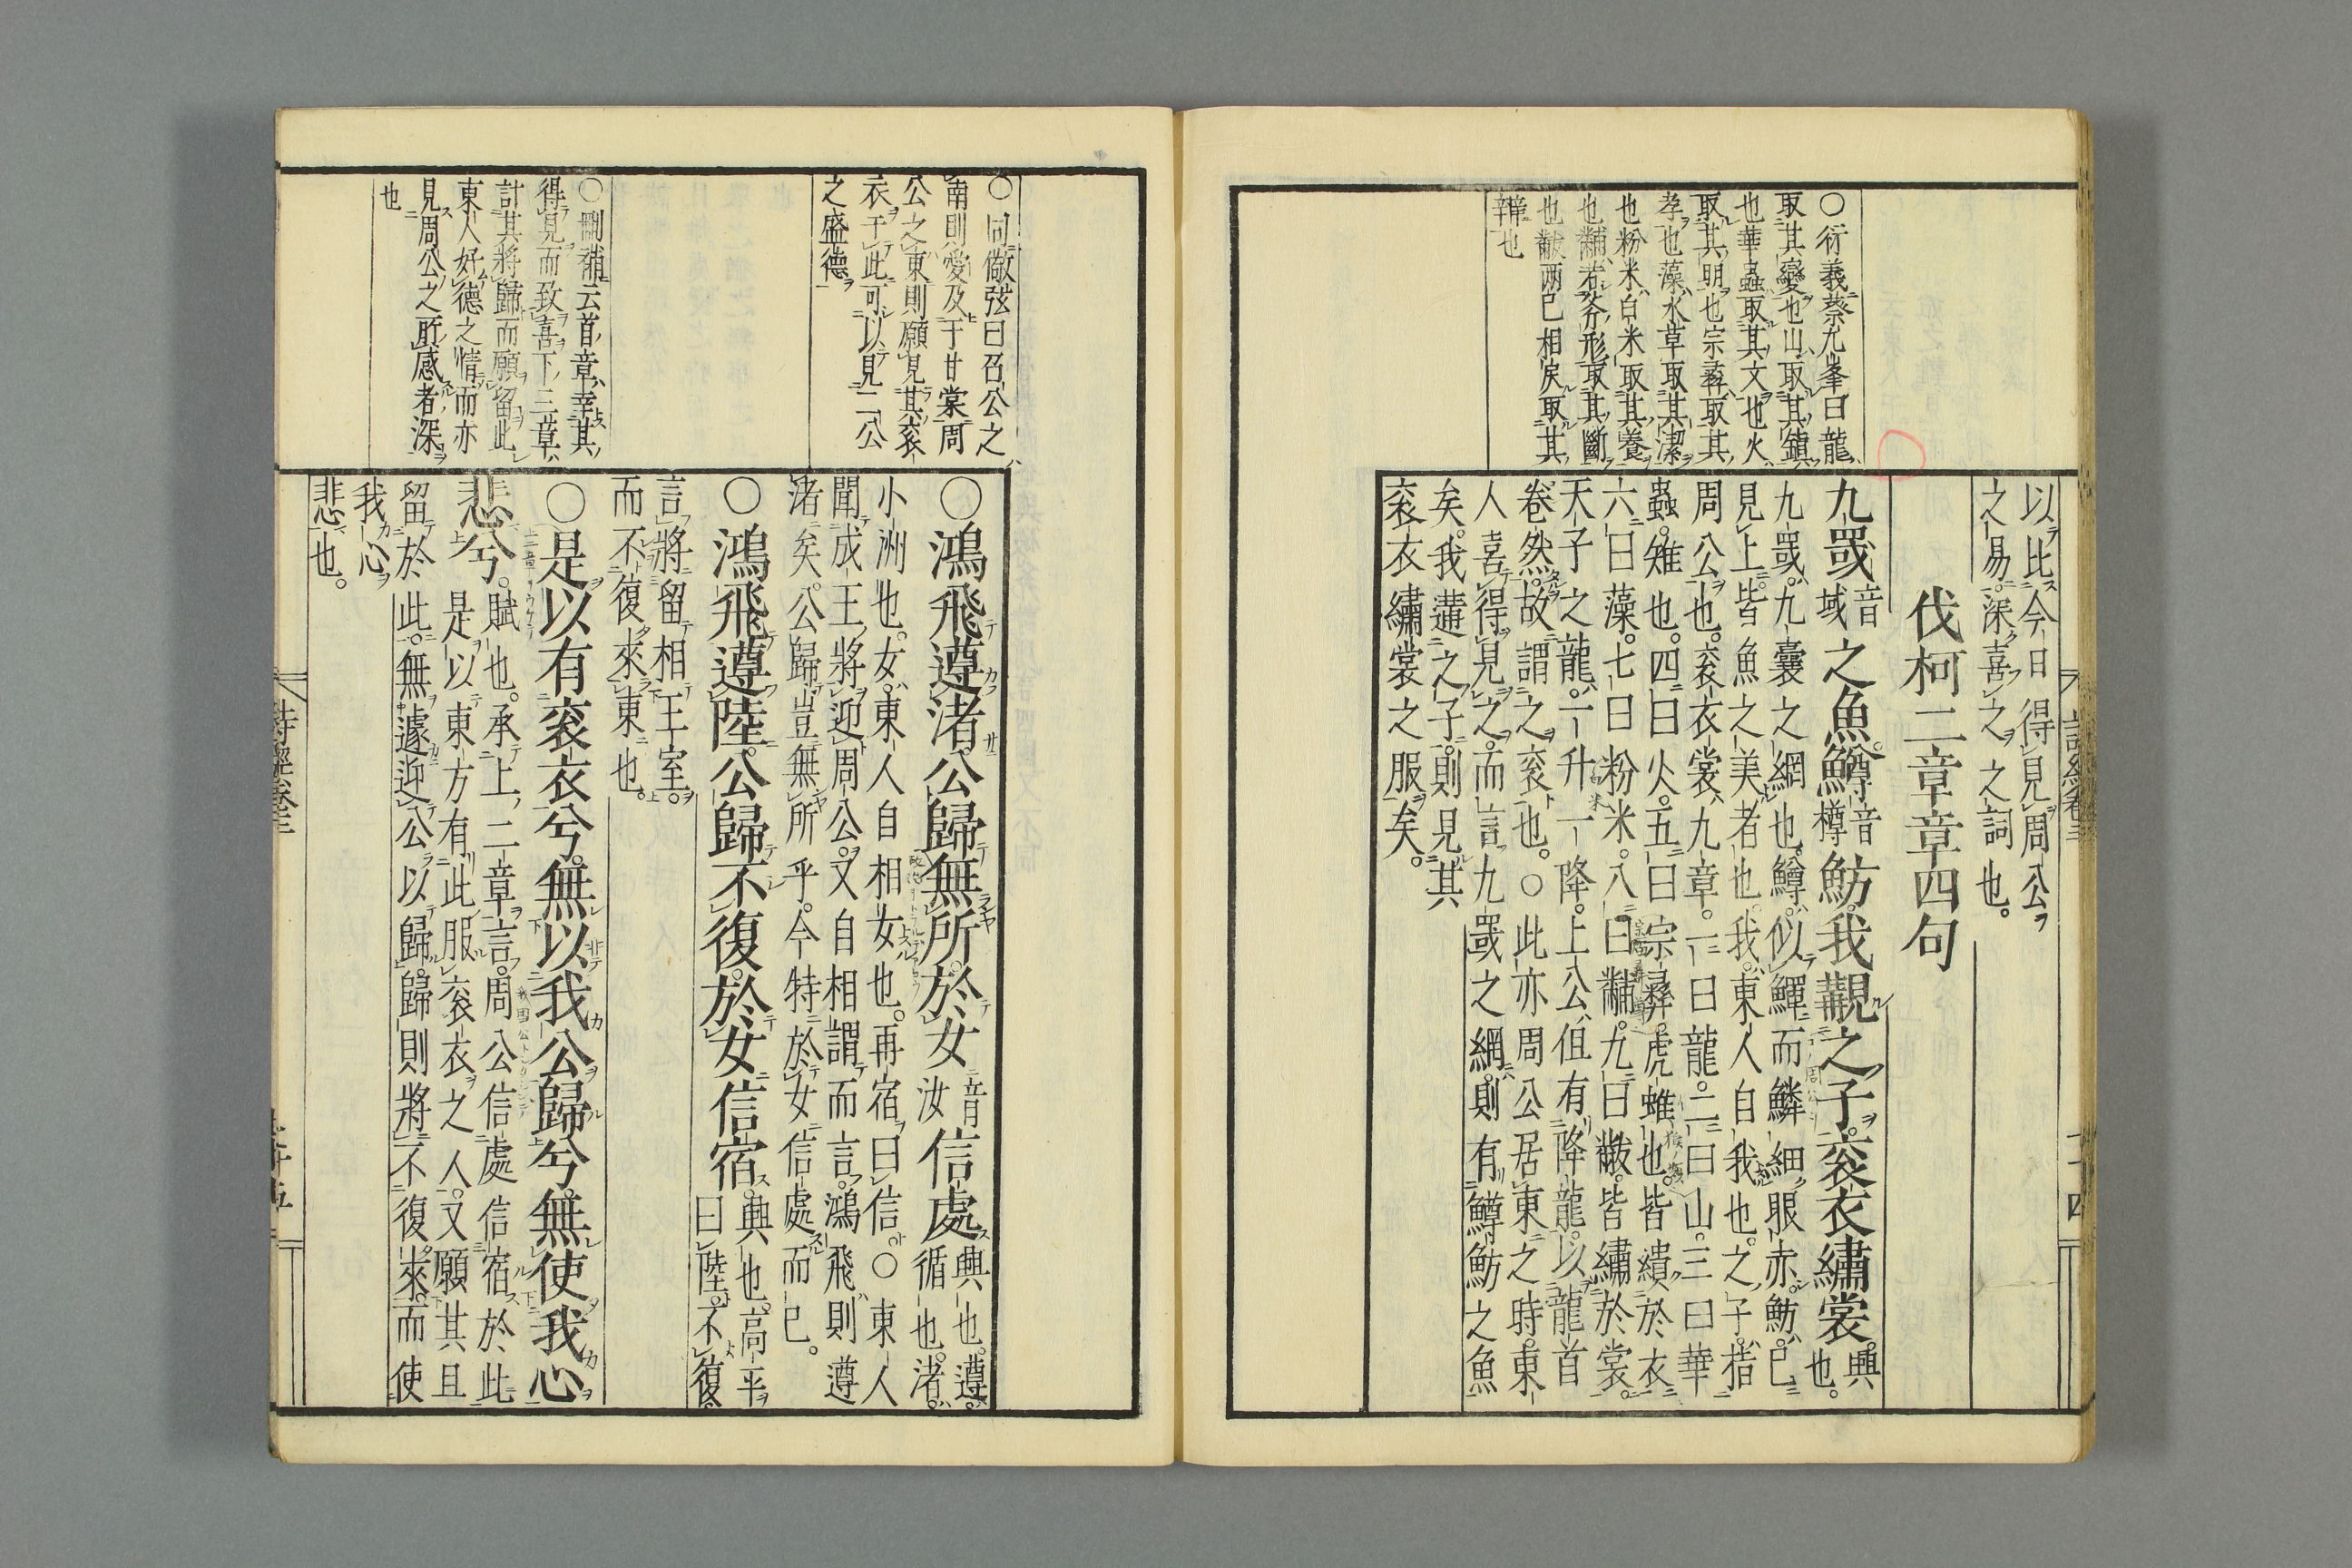 以比今日得見周公
之易深喜之之詞也。
伐柯二章章四句
九罭音域之魚鱒音樽魴我覯之子袞衣繡裳興也。
九罭九囊之網也鱒似鯶而鱗細眼赤魴已
見上皆魚之美者也我東人自我也之子指
周公也袞衣裳九章一曰龍二曰山三曰華
蟲雉也四曰火五曰宗彝虎蜼也皆繢於衣
六曰藻七曰粉米八曰黼九曰黻皆繡於裳
天子之龍一升一降上公但有降龍以龍首
卷然故謂之袞也〇此亦周公居東之時東
人喜得見之而言九罭之網則有鱒魴之魚
矣我遘之子則見其
袞衣繡裳之服矣。
〇衍義蔡九峯曰龍
取其變也山取其鎮
也華蟲取其文也火
取其明也宗彝取其
孝也藻水草取其潔
也粉米白米取其養
也黼若斧形取其斷
也黻两已相戾取其
辯也
詩經卷三
二十四
〇鴻飛遵渚公歸無所於女音汝信處興也遵循也渚
小洲也女東人自相女也再宿曰信〇東人
聞成王將迎周公又自相謂而言鴻飛則遵
渚矣公歸豈無所乎今特於女信處而已。
〇鴻飛遵陸公歸不復於女信宿興也高平曰陸不復
言將留相王室
而不復來東也。
〇是以有袞衣兮無以我公歸兮無使我心
悲兮。賦也承上二章言周公信處信宿於此
是以東方有此服袞衣之人又願其且
留於此無遽迎公以歸歸則將不復來而使
我心
悲也。
〇同儆弦曰召公之
南則愛及于甘棠周
公之東則願見其袞
衣于此可以見二公
之盛德
〇刪補云首章幸其
得見而致喜下三章
計其將歸而願留此
東人好德之情而亦
見周公之所感者深
也
詩經卷三
二十五